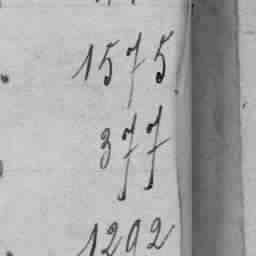 1575
377
1292